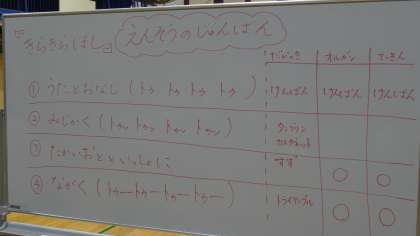 『きらきらぼし』 えんそうのじゅんばん
だがっき オルガン てっきん
① うたとおなじ (トゥ トゥ トゥ トゥ) けんばん けんばん けんばん
② みじかく (トゥッ トゥッ トゥッ トゥッ) タンブリン カスタネット
③ たかいおとといっしょに すず ○ ○
④ ながく (トゥートゥートゥートゥー) トライアングル ○ ○